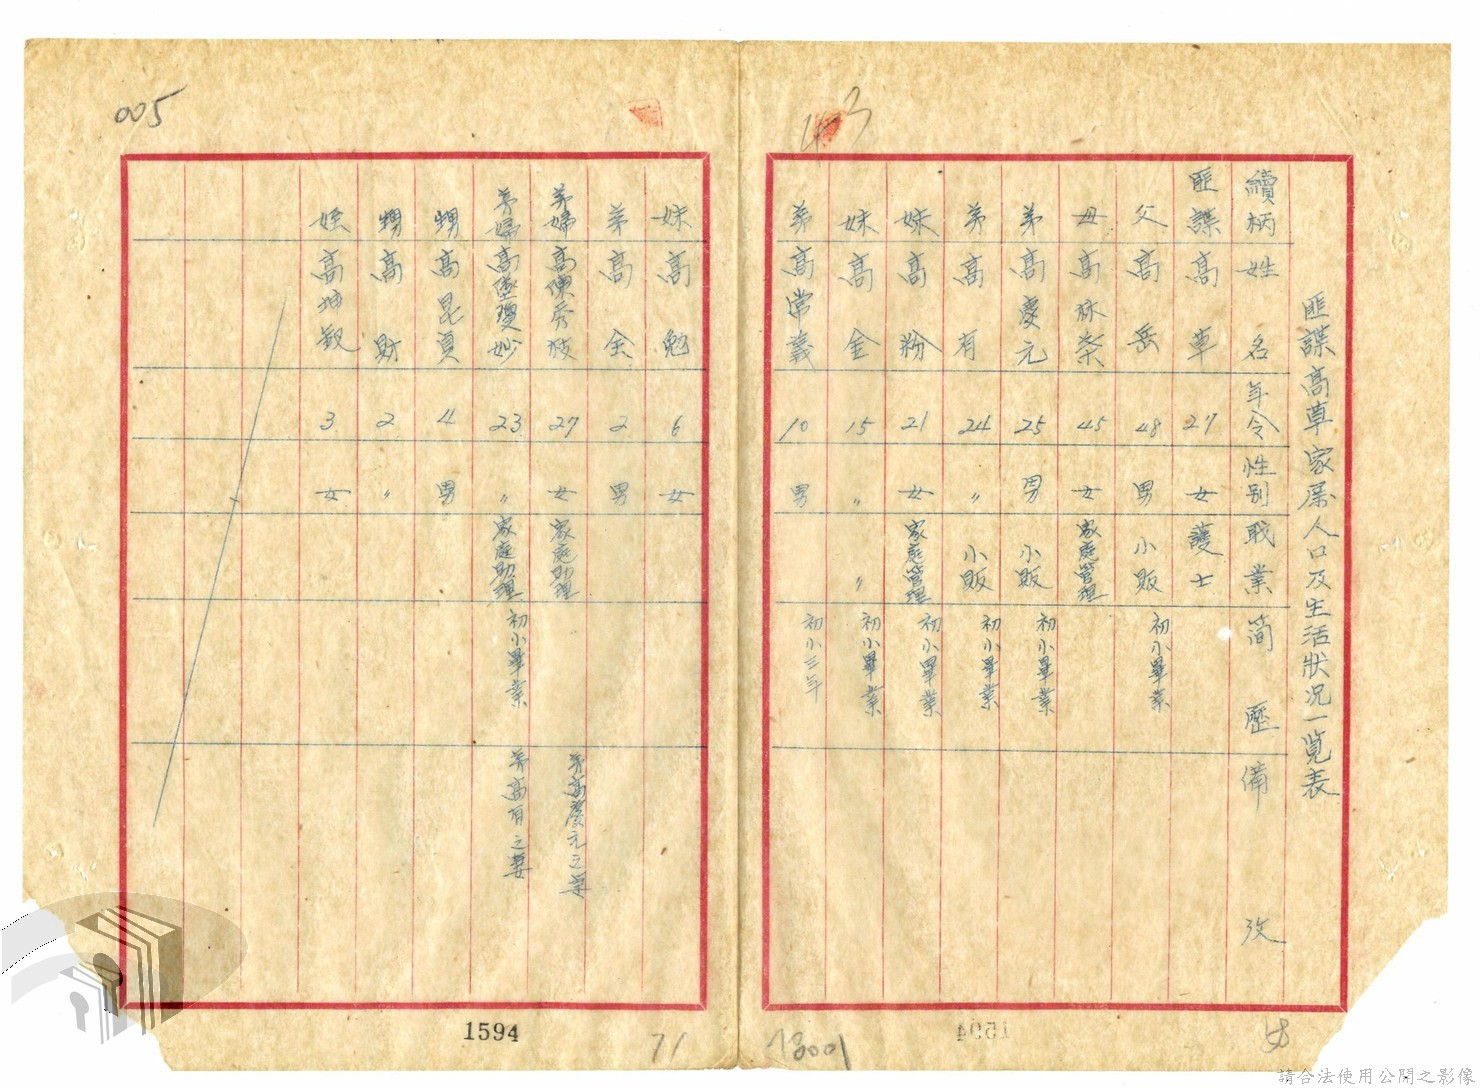 005
43
匪諜高草家屬人口及生活狀况一覧表
續柄 姓名 年令 性別 職業 简歷 備攷
匪諜 高草 27 女 護士
父 高岳 48 男 小販 初小畢業
母 高林 45 女 家庭管理
弟 高慶元 25 男 小販 初小畢業
弟 高有 24 〃 小販 初小畢業
妹 高粉 21 女 家庭管理 初小畢業
妹 高金 15 〃 〃 初小畢業
弟 高常義 10 男 初小三年
妹 高勉 6 女
弟 高金 2 男
弟婦 高陳秀枝 27 女 家庭助理 弟高慶元之妻
弟婦 高 瓊妙 23 〃 家庭助理 初小畢業 弟高有之妻
甥 高昆貞 4 男
甥 高財 2 〃
姪 高 3 女
1594
71
78001
1594
請合法使用公開之影像